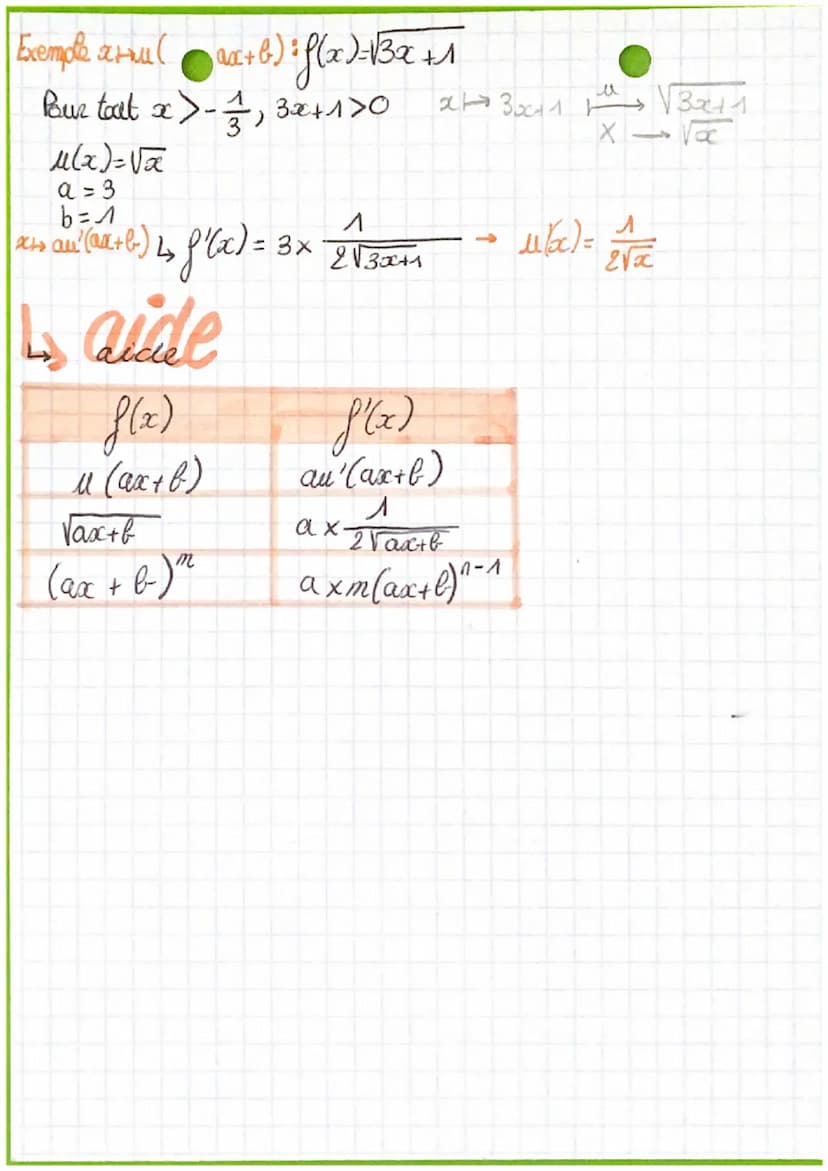 Exemple x↦u( ax+b) : f(x)=√3x+1
Pour tout x > -1/3, 3x+1>0 x ↦ 3x+1 ↦u √3x+1
X → √x
u(x)=√x
a = 3
b = 1
x↦ au'(ax+b) ↳ f'(x) = 3 × 1/2√3x+1 → u'(x)= 1/2√x
↳ aide
↳ aide
f(x) f'(x)
u (ax+b) au'(ax+b)
√ax+b a × 1/2√ax+b
(ax + b)^n a×n(ax+b)^n-1